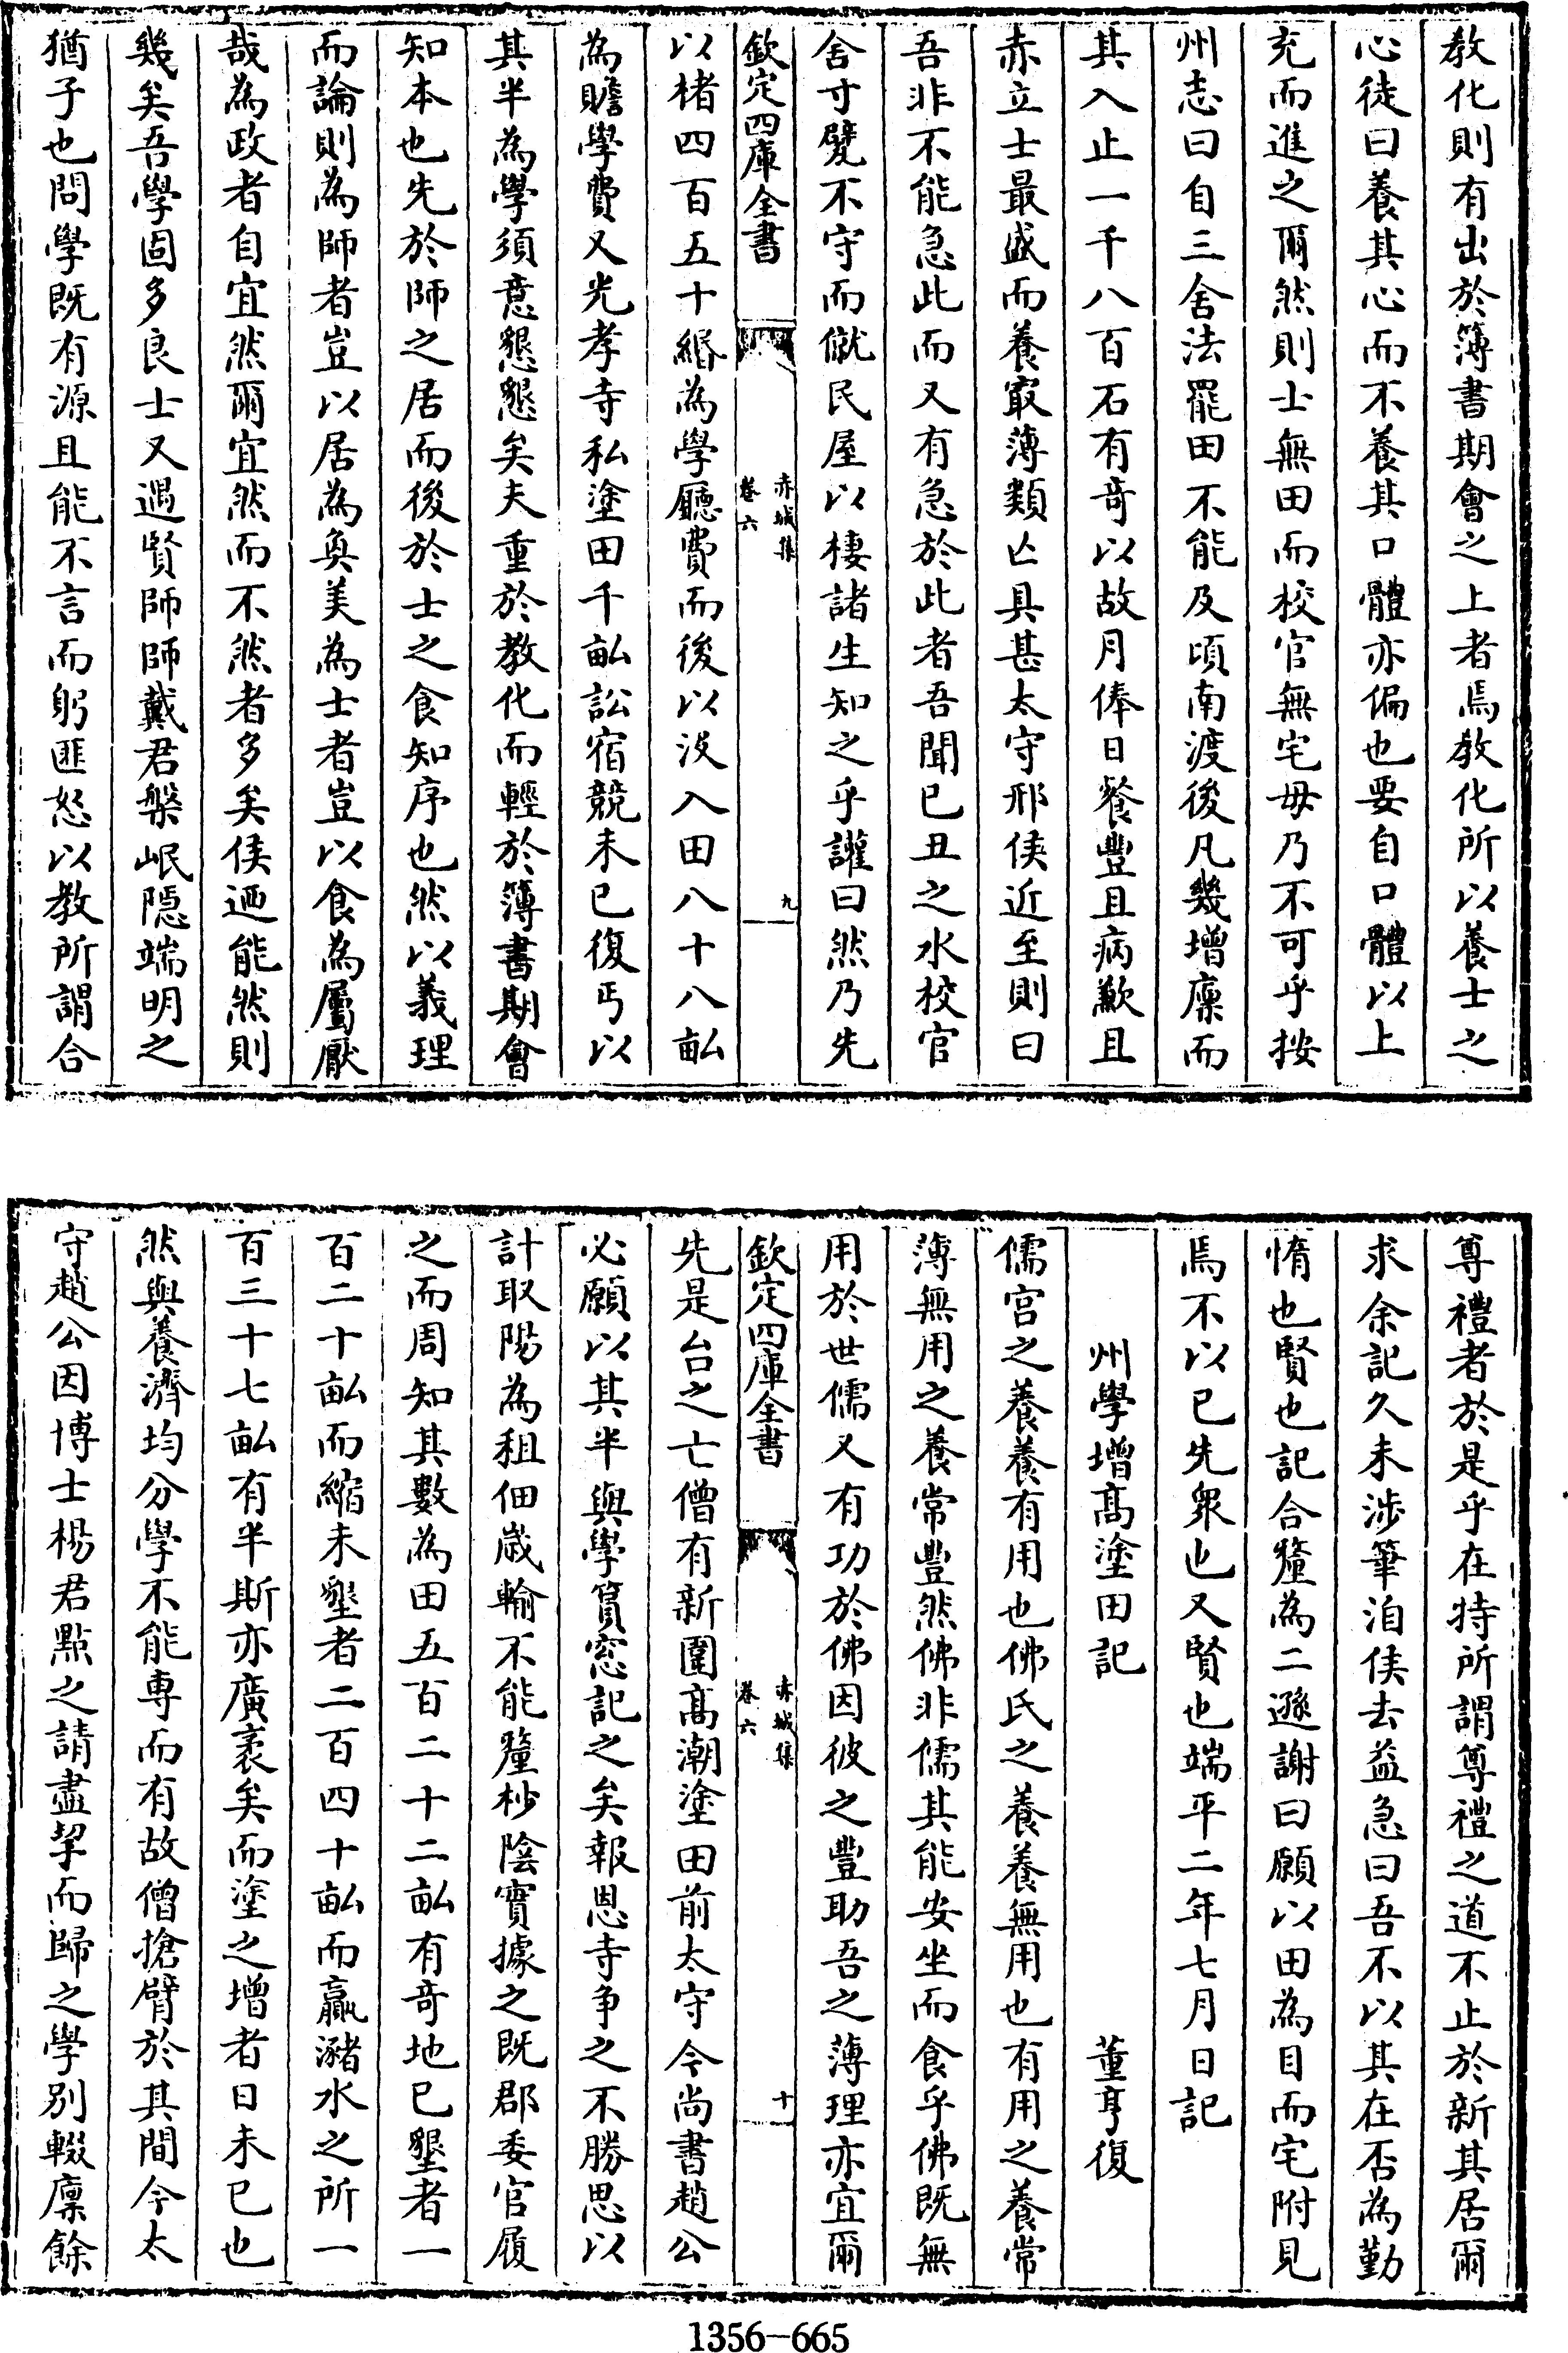 教化則有出於簿書期會之上者焉教化所以養士之
心徒曰養其心而不養其口體亦偏也要自口體以上
充而進之爾然則士無田而校官無宅毋乃不可乎按
州志曰自三舍法罷田不能及頃南渡後凡幾增廩而
其入止一千八百石有奇以故月俸日餐豐且病歉且
赤立士最盛而養寂薄類亡具甚太守邢侯近至則曰
吾非不能急此而又有急於此者吾聞已丑之水校官
舍寸甓不守而僦民屋以棲諸生知之乎讙曰然乃先
欽定四庫全書
赤城集
卷六
九
以楮四百五十緡為學廳費而後以沒入田八十八畝
為贍學費又光孝寺私塗田千畝訟宿競未已復丐以
其半為學須意懇懇矣夫重於教化而輕於簿書期會
知本也先於師之居而後於士之食知序也然以義理
而論則為師者豈以居為奐美為士者豈以食為屬厭
哉為政者自宜然爾宜然而不然者多矣侯迺能然則
幾矣吾學固多良士又遇賢師師戴君槃岷隱端明之
猶子也問學既有源且能不言而躬匪怒以教所謂合
尊禮者於是乎在特所謂尊禮之道不止於新其居爾
求余記久未涉筆洎侯去益急曰吾不以其在否為勤
惰也賢也記合釐為二遜謝曰願以田為目而宅附見
焉不以已先衆也又賢也端平二年七月日記
州學增高塗田記 董亨復
儒宫之養養有用也佛氏之養養無用也有用之養常
薄無用之養常豐然佛非儒其能安坐而食乎佛既無
用於世儒又有功於佛因彼之豐助吾之薄理亦宜爾
欽定四庫全書
赤城集
卷六
十
先是台之亡僧有新圍高潮塗田前太守今尚書趙公
必願以其半與學篔窓記之矣報恩寺争之不勝思以
計取陽為租佃歲輸不能釐杪陰實據之既郡委官履
之而周知其數為田五百二十二畝有奇地已墾者一
百二十畝而縮未墾者二百四十畝而贏瀦水之所一
百三十七畝有半斯亦廣袤矣而塗之增者日未已也
然與養濟均分學不能専而有故僧搶臂於其間今太
守趙公因博士楊君點之請盡挈而歸之學别輟廩餘
1356-665